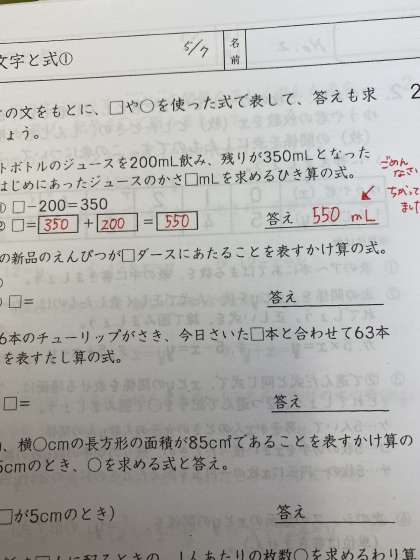 文字と式① 5/7 名前
の文をもとに、□や○を使った式で表して、答えも求 2
ょう。
トボトルのジュースを200mL飲み、残りが350mLとなった
はじめにあったジュースのかさ□mLを求めるひき算の式。
ごめんなさい
ちがってました
① □-200=350
② □= 350 + 200 = 550 答え 550 mL
の新品のえんぴつが□ダースにあたることを表すかけ算の式。
□= 答え
6本のチューリップがさき、今日さいた□本と合わせて63本
を表すたし算の式。
□= 答え
、横○cmの長方形の面積が85c㎡であることを表すかけ算の
5cmのとき、○を求める式と答え。
□が5cmのとき) 答え
に配るときの、1人あたりの枚数○を求めるわり算